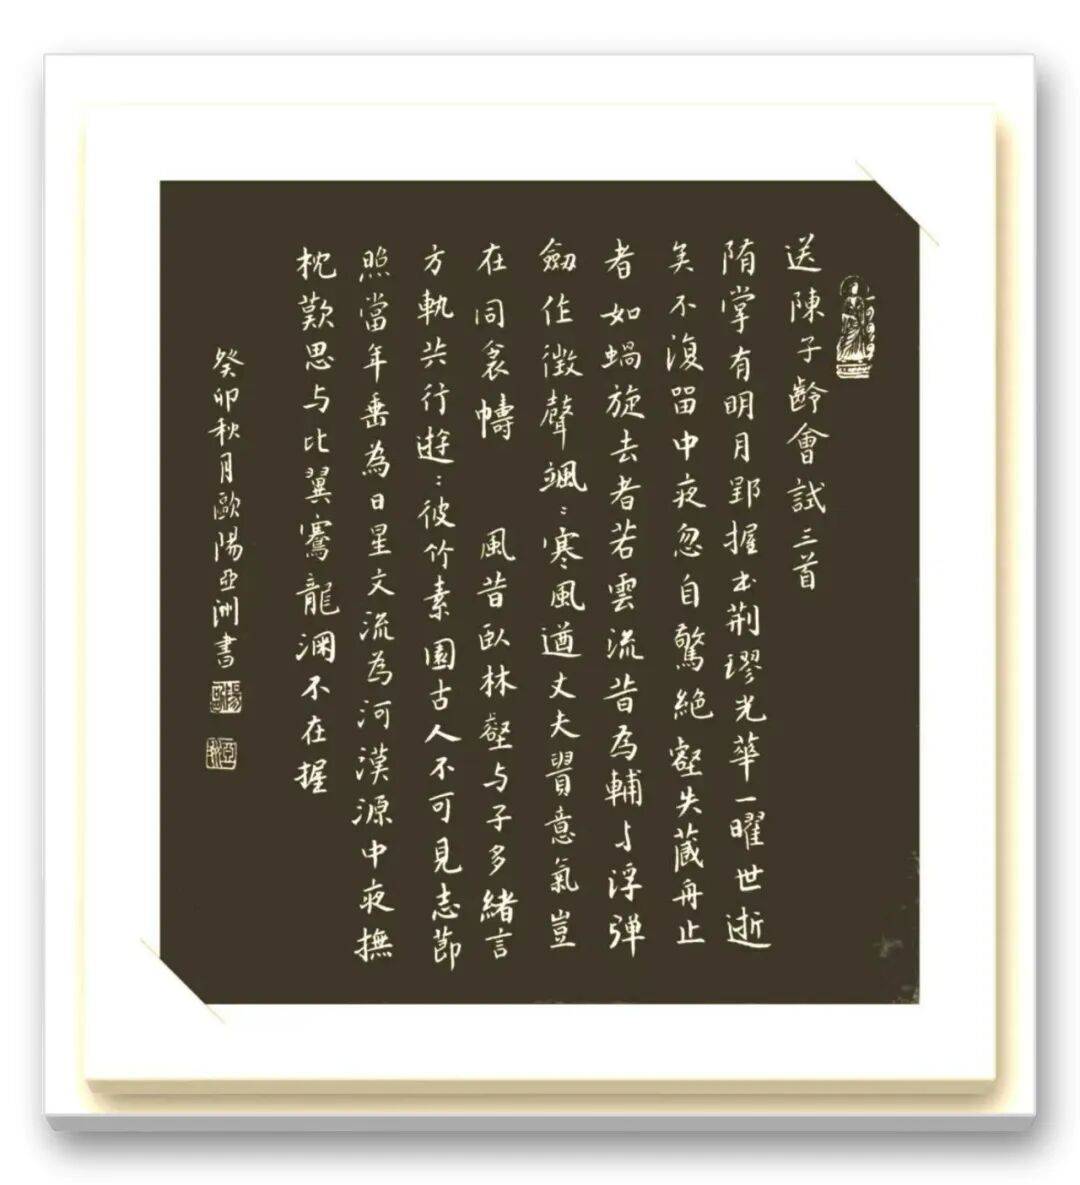 送陳子齡會試三首
隋掌有明月郢握出荆璆光華一曜世逝
矣不復留中夜忽自驚絕壑失藏舟止
者如蝸旋去者若雲流昔為輔与浮弹
劒作徵聲颯〻寒風遒丈夫貿意氣豈
在同衾幬 風昔臥林壑与子多緒言
方軌共行遊〻彼竹素園古人不可見志節
照當年垂為日星文流為河漢源中夜撫
枕歎思与比翼騫龍淵不在握
癸卯秋月歐陽亞洲書